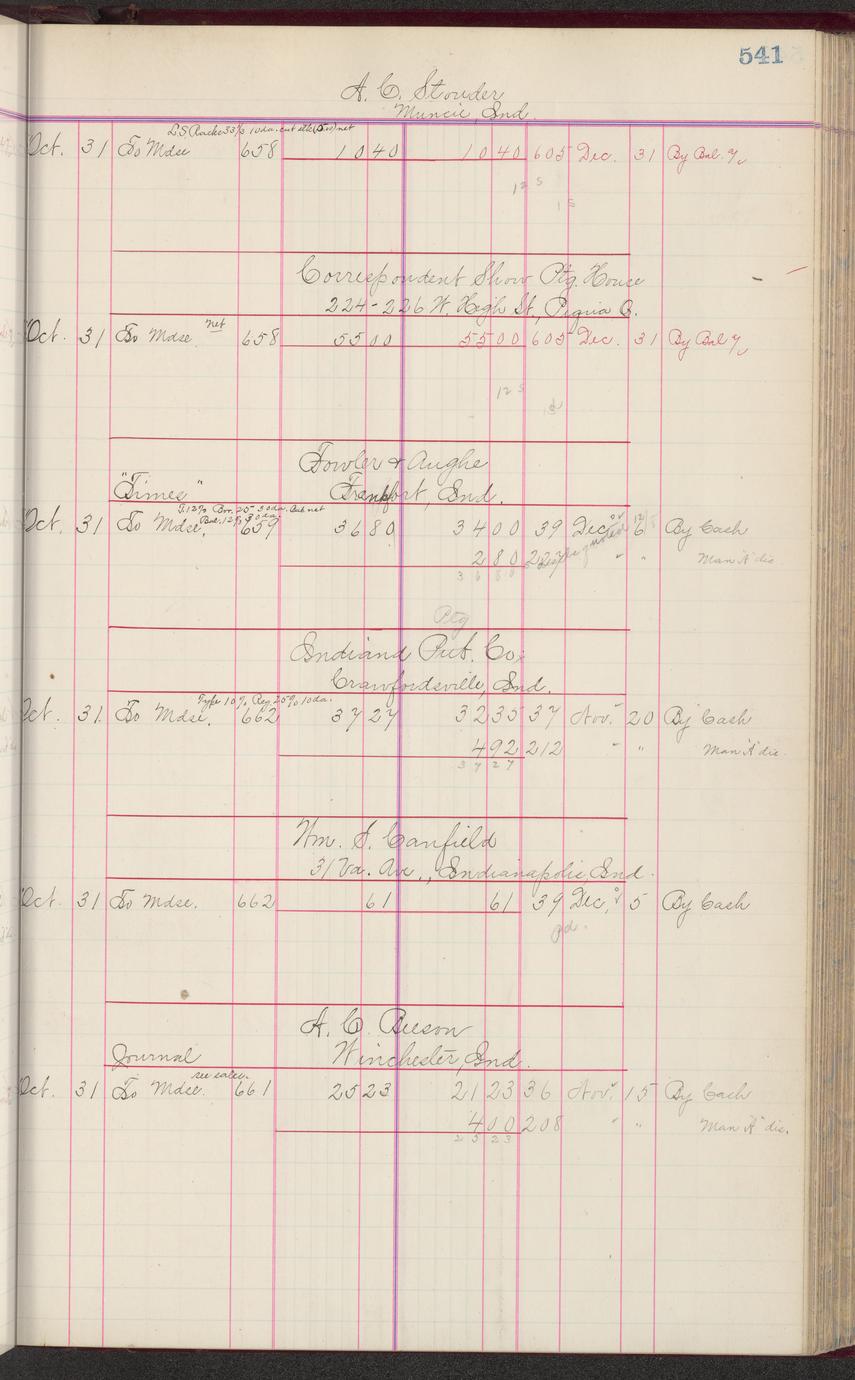 541
A. C. Stouder
Muncie, Ind.
L.S. Racks 33⅓ 10 da. cut stk (5.00) net
Oct. 31 To Mdse 658 10 40 10 40 605 Dec. 31 By Bal. 
12 5
1 5
Correspondent Show Ptg. House
224-226 W. High St., Piqua O.
net
Oct. 31 To Mdse. 658 55 00 55 00 605 Dec. 31 By Bal 
12 5
Fowler & Aughe
"Times" Frankfort, Ind.
T. 12% Bro. 25 - 30 da. Cut net
Bal. 12% 30 da.
Oct. 31 To Mdse. 659 36 80 34 00 39 Dec. 6 By Cash
2 80 " " Man "A" dis
3 6 8 0
Ptg
Indiana Pub. Co.
Crawfordsville, Ind.
Type 10% Reg. 25% 10 da.
Oct. 31. To Mdse. 662 37 27 32 35 37 Nov. 20 By Cash
4 92 212 " " Man "A" dis.
3 7 2 7
Wm. S. Canfield
31 Va. Ave., Indianapolis, Ind.
Oct. 31 To Mdse. 662 61 61 39 Dec. 5 By Cash
pd.
A. C. Beeson
Journal Winchester, Ind.
see sales.
Oct. 31 To Mdse. 661 25 23 21 23 36 Nov. 15 By Cash
4 00 208 " " Man "A" dis.
2 5 2 3